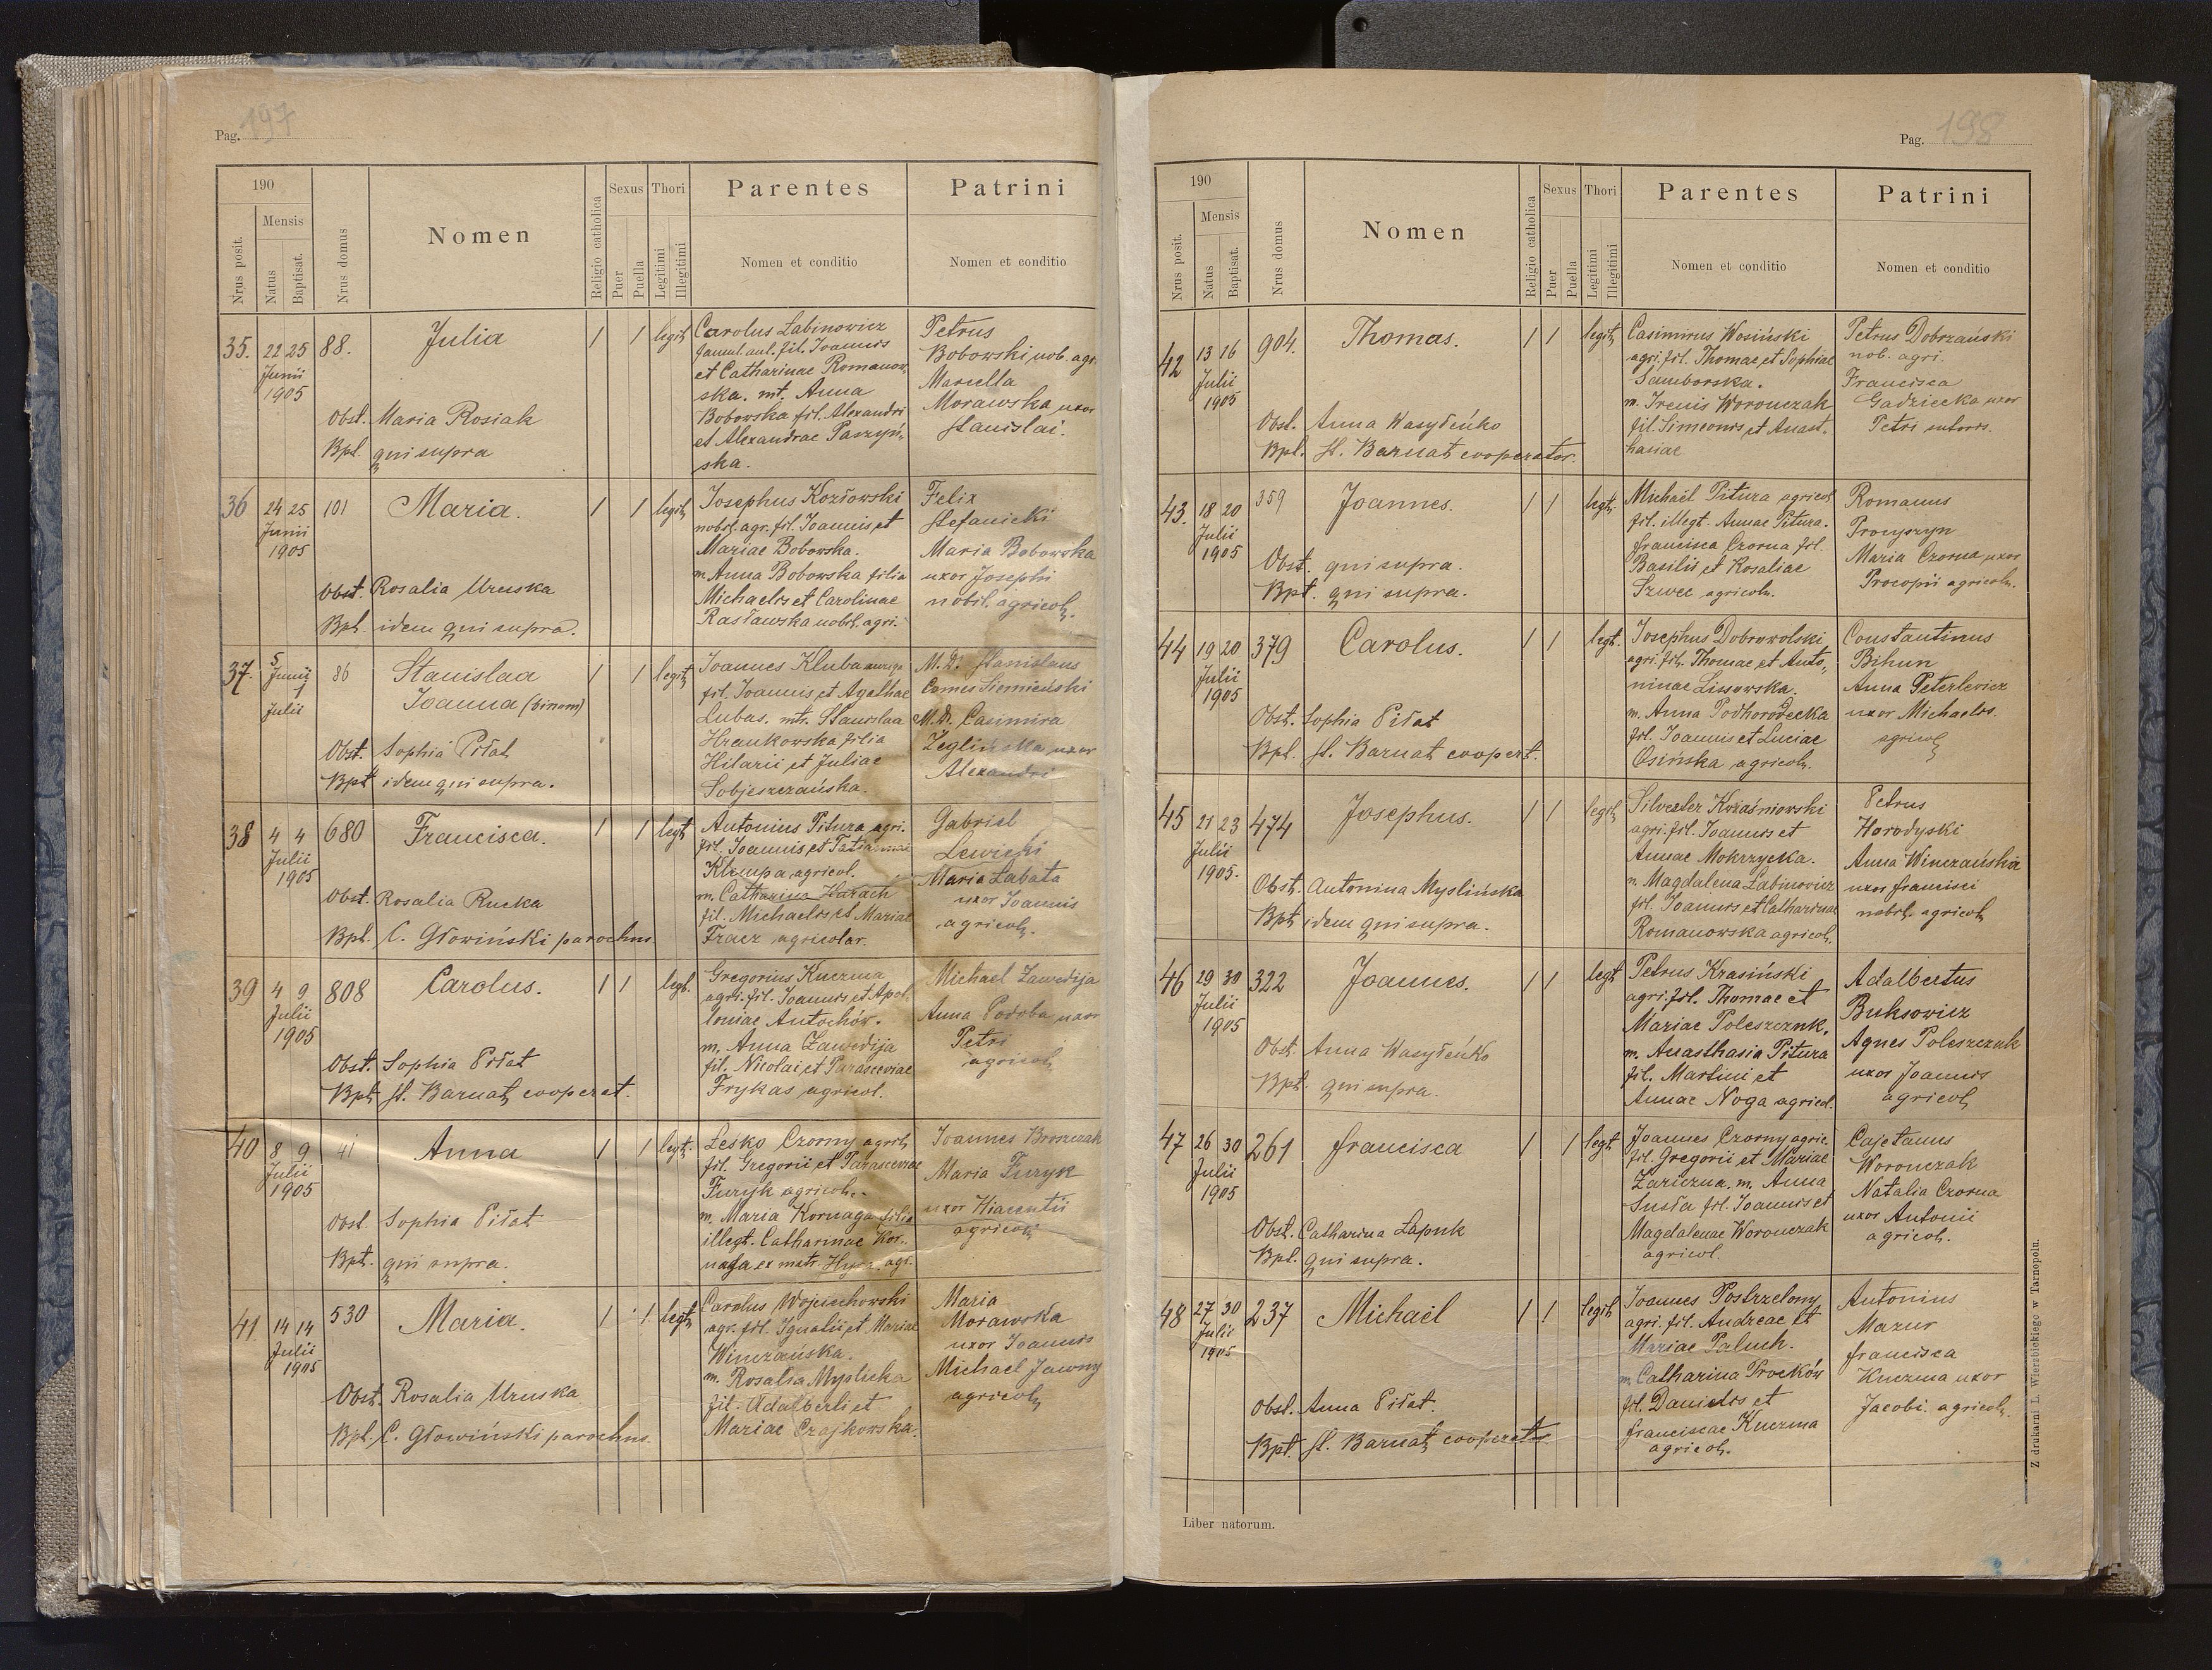 Pag. 197
190
Nrus posit.
Mensis
Natus
Baptisat.
Nrus domus
Nomen
Religio catholica
Sexus
Puer
Puella
Thori
Legitimi
Illegitimi
Parentes
Nomen et conditio
Patrini
Nomen et conditio
35. 22 25 88. Julia 1 1 legit.
Junii
1905
Obst. Maria Rosiak
Bpt. qui supra
Carolus Łabinowicz
famul. aul. fil. Joannis
et Catharinae Romanow-
ska. mt. Anna
Bobowska fil. Alexandri
et Alexandrae Paszyń-
ska.
Petrus
Bobowski nob. agr.
Marcella
Morawska uxor
Stanislai.
36 24 25 101 Maria. 1 1 legit.
Junii
1905
Obst. Rosalia Uruska
Bpt. idem qui supra.
Josephus Kozłowski
nobil. agr. fil. Joannis et
Mariae Bobowska.
m. Anna Bobowska filia
Michaelis et Carolinae
Rasławska nobil. agri.
Felix
Stefanicki
Maria Bobowska
uxor Josephi
nobil. agricol.
37. 5 86 Stanislaa 1 1 legit.
Junii
1
Julii
Joanna (binom)
Obst. Sophia Piłat
Bpt. idem qui supra.
Joannes Kluba
fil. Joannis et Agathae
Lubas. mt. Stanislaa
Hrankowska filia
Hilarii et Juliae
Sobjeszczańska.
M. D. Stanislaus
Comes Siemieński
M. D. Casimira
Zeglińska uxor
Alexandri
38 4 4 680 Francisca. 1 1 legt.
Julii
1905
Obst. Rosalia Rucka
Bpt. C. Głowiński parochus
Antonius Pitura agri.
fil. Joannis et Tatiannae
Klempa agricol.
m. Catharina Harach
fil. Michaelis et Mariae
Tracz agricolar.
Gabriel
Lewicki
Maria Łabata
uxor Joannis
agricol.
39 4 9 808 Carolus. 1 1 legt.
Julii
1905
Obst. Sophia Piłat
Bpt. St. Barnat cooperat.
Gregorius Kuczma
agri. fil. Joannis et Apol-
loniae Antochów.
m. Anna Zawedija
fil. Nicolai et Parasceviae
Frykas agricol.
Michael Zawedija
Anna Podoba uxor
Petri
agricol.
40 8 9 41 Anna 1 1 legt.
Julii
1905
Obst. Sophia Piłat
Bpt. qui supra.
Lesko Czorny agril.
fil. Gregorii et Parasceviae
Furyk agricol.
m. Maria Kornaga filia
illegt. Catharinae Kor-
naga ex matr. agr.
Joannes Broszczak
Maria Furyk
uxor Hiacentii
agricol.
41 14 14 530 Maria. 1 1 legt.
Julii
1905
Obst. Rosalia Uruska
Bpt. C. Głowiński parochus.
Carolus Wojciechowski
agr. fil. Ignatii et Mariae
Winczańska.
m. Rosalia Myslicka
fil. Adalberti et
Mariae Czajkowska.
Maria
Morawska
uxor Joannis
Michael Jawny
agricol.
Pag. 198
190
Nrus posit.
Mensis
Natus
Baptisat.
Nrus domus
Nomen
Religio catholica
Sexus
Puer
Puella
Thori
Legitimi
Illegitimi
Parentes
Nomen et conditio
Patrini
Nomen et conditio
42 13 16 904. Thomas. 1 1 legit.
Julii
1905
Obst. Anna Wasyłeńko
Bpt. St. Barnat cooperator.
Casimirus Wosiński
agri. fil. Thomae et Sophiae
Samborska.
m. Irenis Woronczak
fil. Simeonis et Anast-
hasiae
Petrus Dobrzański
nob. agri.
Francisca
Gadziecka uxor
Petri sutoris.
43. 18 20 359 Joannes. 1 1 legt.
Julii
1905
Obst. qui supra.
Bpt. qui supra.
Michael Pitura agricol.
fil. illegt. Annae Pitura.
Francisca Czorna fil.
Basilii et Rosaliae
Szwec agricol.
Romanus
Procyszyn
Maria Czorna uxor
Procopii agricol.
44 19 20 379 Carolus. 1 1 legt.
Julii
1905
Obst. Sophia Piłat
Bpt. St. Barnat coopert.
Josephus Dobrowolski
agri. fil. Thomae et Anto-
ninae Lissowska.
m. Anna Podhorodecka
fil. Joannis et Luciae
Osińska agricol.
Constantinus
Bihun
Anna Peterlevicz
uxor Michaelis.
agricol.
45 21 23 474 Josephus. 1 1 legit.
Julii
1905.
Obst. Antonina Myslińska
Bpt. idem qui supra.
Silvester Kwaśniowski
agri. fil. Joannis et
Annae Mokrzycka.
m. Magdalena Łabinowicz
fil. Joannis et Catharinae
Romanowska agricol.
Petrus
Horodyski
Anna Winczańska
uxor Francisci
nobil. agricol.
46 29 30 322 Joannes. 1 1 legt.
Julii
1905
Obst. Anna Wasyłeńko
Bpt. qui supra.
Petrus Krasiński
agri. fil. Thomae et
Mariae Poleszczuk.
m. Anasthasia Pitura
fil. Martini et
Annae Noga agricol.
Adalbertus
Buksowicz
Agnes Poleszczuk
uxor Joannis
agricol.
47 26 30 261 Francisca 1 1 legt.
Julii
1905
Obst. Catharina Łapuk
Bpt. qui supra.
Joannes Czorny agric.
fil. Gregorii et Mariae
Zariczna. m. Anna
Susła fil. Joannis et
Magdalenae Woronczak
agricol.
Cajetanus
Woronczak
Natalia Czorna
uxor Antonii
agricol.
48 27 30 237 Michael 1 1 legit.
Julii
1905
Obst. Anna Piłat.
Bpt. St. Barnat cooperat.
Joannes Postrzelony
agri. fil. Andreae et
Mariae Paluch.
m. Catharina Procków
fil. Danielis et
Franciscae Kuczma
agricol.
Antonius
Mazur
Francisca
Kuczma uxor
Jacobi. agricol.
Liber natorum.
Z drukarni L. Wierzbickiego w Tarnopolu.